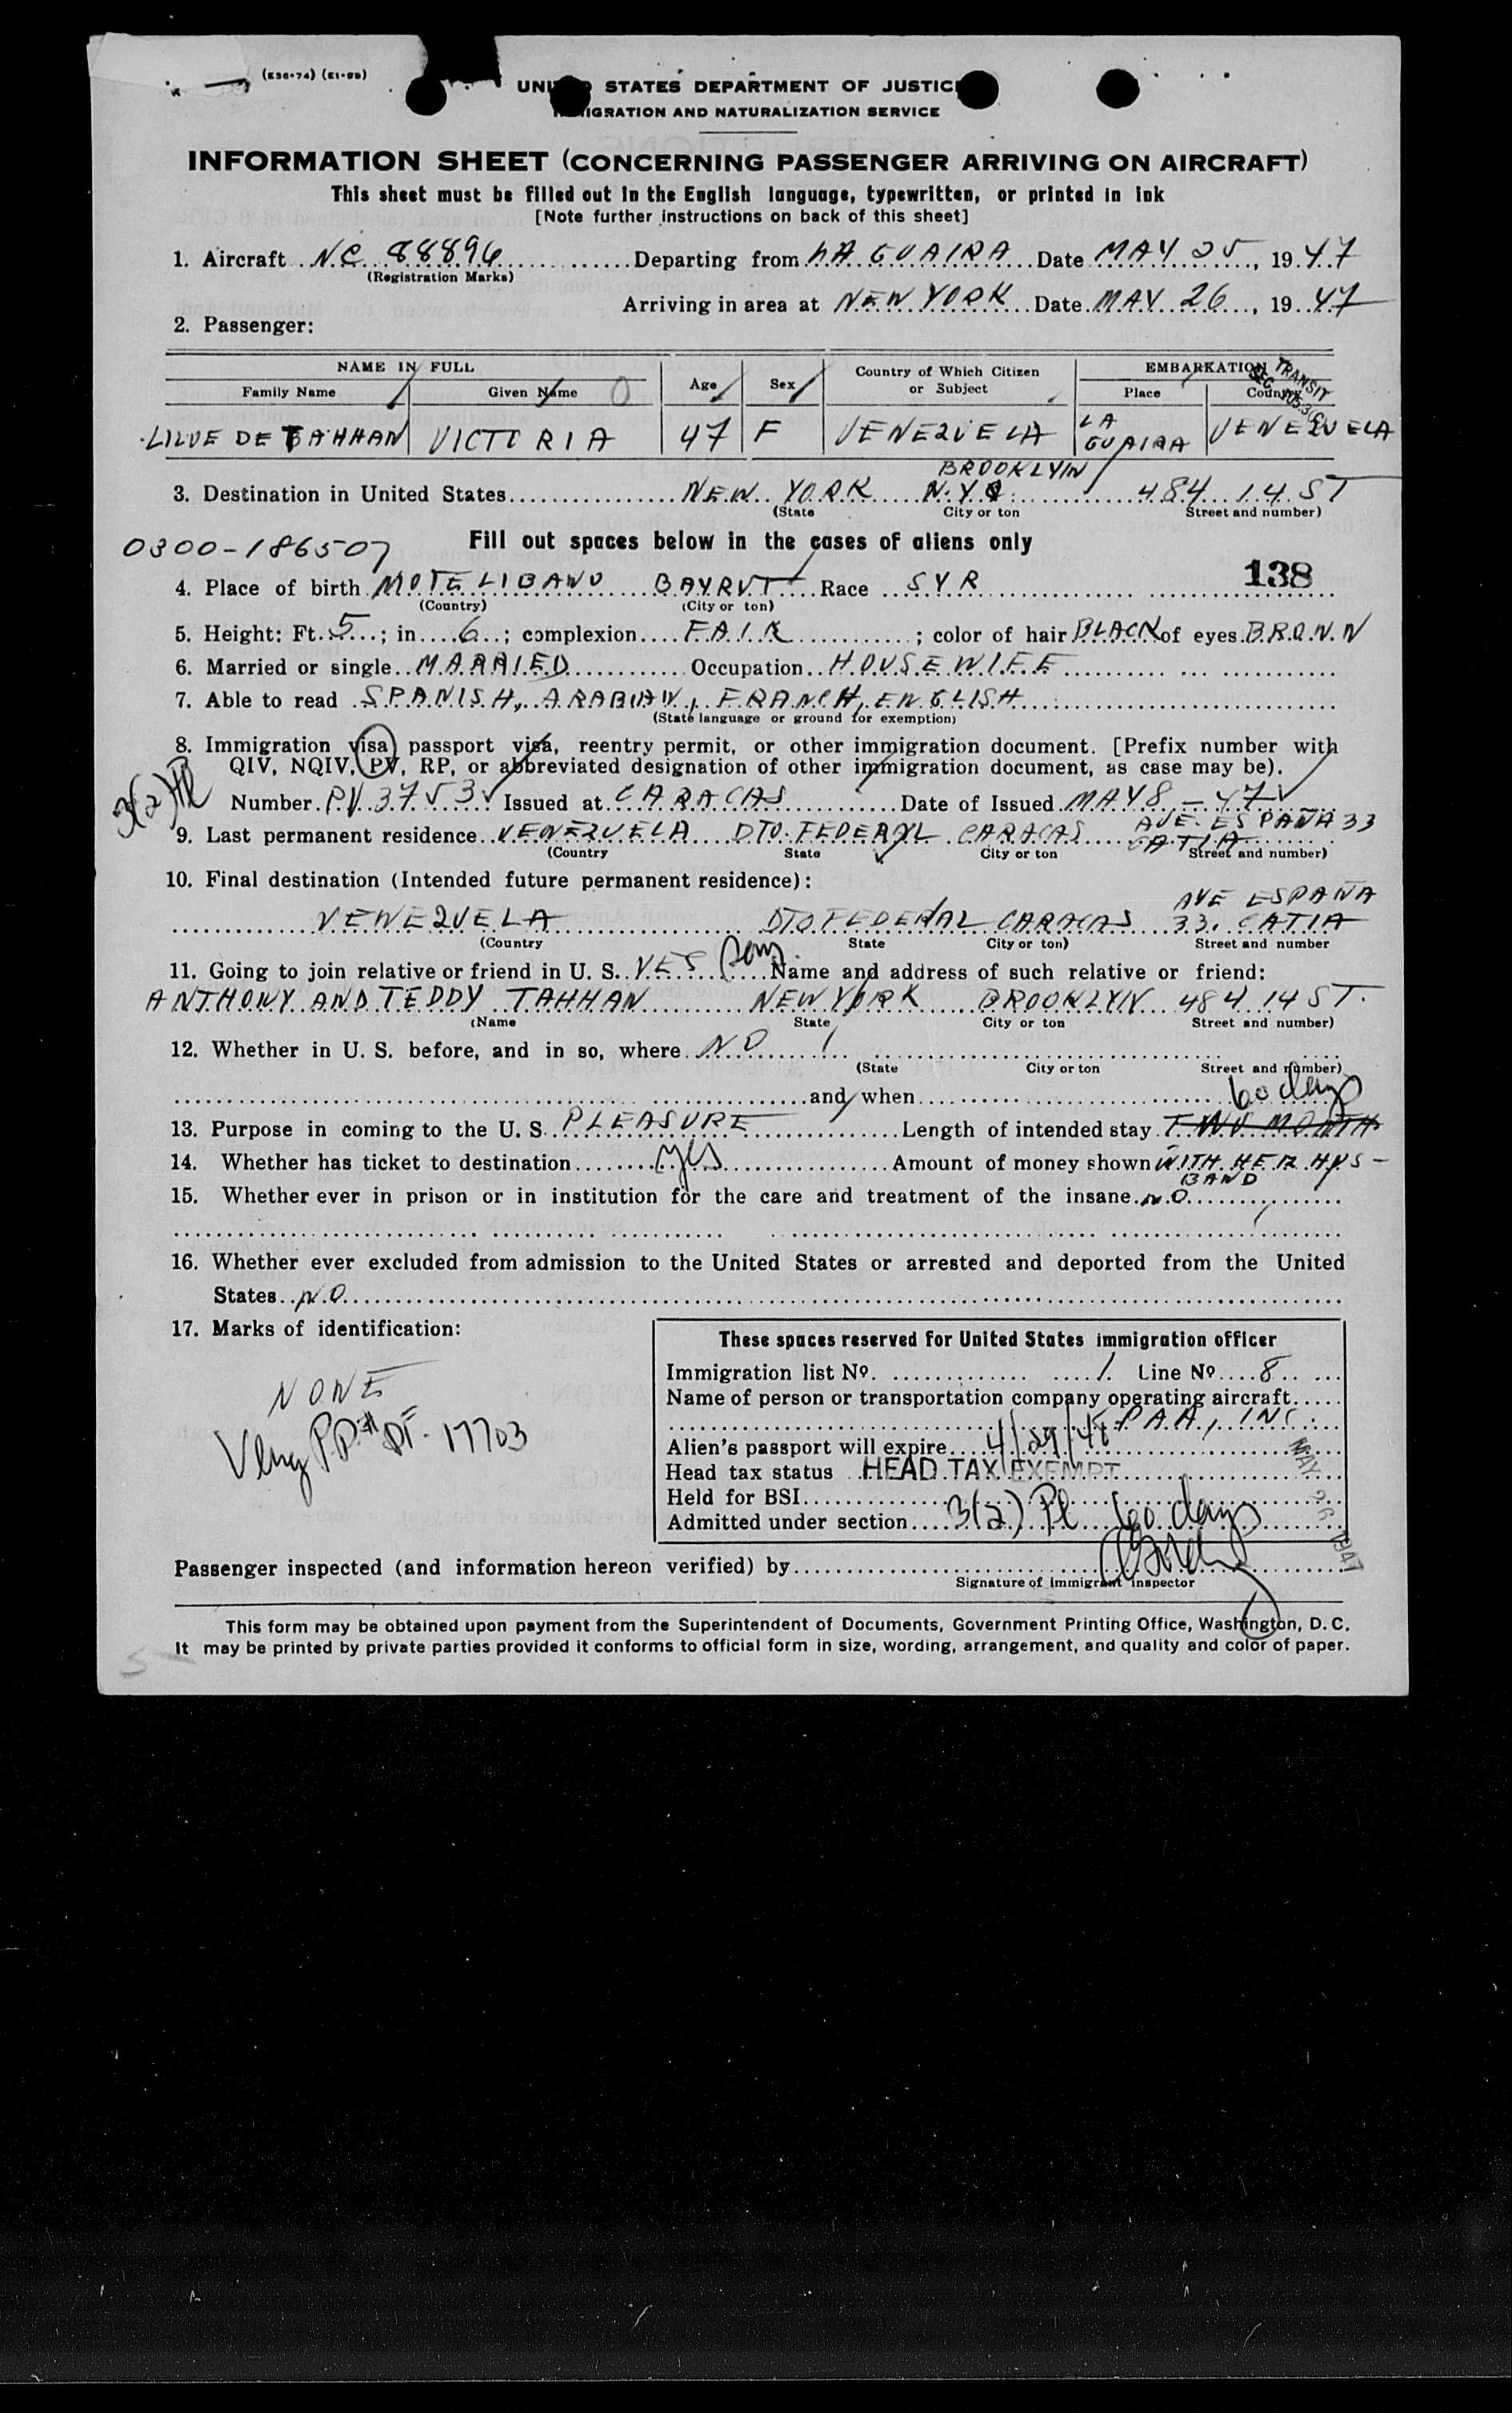 (E36-74) (E1-95)
UNI STATES DEPARTMENT OF JUSTIC
IGRATION AND NATURALIZATION SERVICE
INFORMATION SHEET (CONCERNING PASSENGER ARRIVING ON AIRCRAFT)
This sheet must be filled out in the English language, typewritten, or printed in ink
[Note further instructions on back of this sheet]
1. Aircraft NC 88896 Departing from LA GUAIRA Date MAY 25, 1947
(Registration Marks)
Arriving in area at NEW YORK Date MAY 26, 1947
2. Passenger:
NAME IN FULL Age Sex Country of Which Citizen or Subject EMBARKATION TRANSIT
Family Name Given Name 0 Place Country SEC. 105.3(C)
LILUE DE TAHHAN VICTORIA 47 F VENEZUELA LA GUAIRA VENEZUELA
BROOKLYIN
3. Destination in United States NEW YORK N.Y. 484 14 ST
(State City or ton Street and number)
0300-186507 Fill out spaces below in the cases of aliens only
138
4. Place of birth MOTE LIBANO BAYRUT Race SYR
(Country) (City or ton)
5. Height: Ft. 5; in 6; complexion FAIR; color of hair BLACK of eyes BROWN
6. Married or single MARRIED Occupation HOUSEWIFE
7. Able to read SPANISH, ARABIAN, FRANCH, ENGLISH
(State language or ground for exemption)
8. Immigration visa passport visa, reentry permit, or other immigration document. [Prefix number with
QIV, NQIV, PV, RP, or abbreviated designation of other immigration document, as case may be).
3(2) Pl Number PV 3753 Issued at CARACAS Date of Issued MAY 8 - 47
AVE. ESPAÑA 33
9. Last permanent residence VENEZUELA DTO. FEDERAL CARACAS CATIA
(Country State City or ton Street and number)
10. Final destination (Intended future permanent residence):
AVE ESPAÑA
VENEZUELA DTO FEDERAL CARACAS 33. CATIA
(Country State City or ton) Street and number
11. Going to join relative or friend in U. S. YES sons Name and address of such relative or friend:
ANTHONY AND TEDDY TAHHAN NEW YORK BROOKLYIN 484 14 ST.
(Name State City or ton Street and number)
12. Whether in U. S. before, and in so, where NO
(State City or ton Street and number)
and when 60 days
13. Purpose in coming to the U. S. PLEASURE Length of intended stay TWO MONTH
14. Whether has ticket to destination yes Amount of money shown WITH HER HUS-
BAND
15. Whether ever in prison or in institution for the care and treatment of the insane NO
16. Whether ever excluded from admission to the United States or arrested and deported from the United
States NO
17. Marks of identification:
NONE
Venz P.P.# DF-17703
These spaces reserved for United States immigration officer
Immigration list No. 1 Line No 8
Name of person or transportation company operating aircraft
P.A.A., INC.
Alien's passport will expire 4/29/48
Head tax status HEAD TAX EXEMPT
Held for BSI
Admitted under section 3(2) Pl 60 days
MAY 26 1947
Passenger inspected (and information hereon verified) by
Signature of immigrant inspector
This form may be obtained upon payment from the Superintendent of Documents, Government Printing Office, Washington, D. C.
It may be printed by private parties provided it conforms to official form in size, wording, arrangement, and quality and color of paper.
5